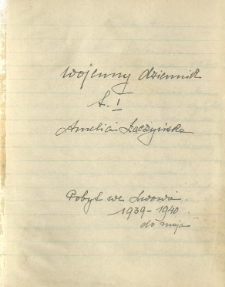 Wojenny dziennik
t. I
Amelia Łączyńska
Pobyt we Lwowie
1939-1940
do maja